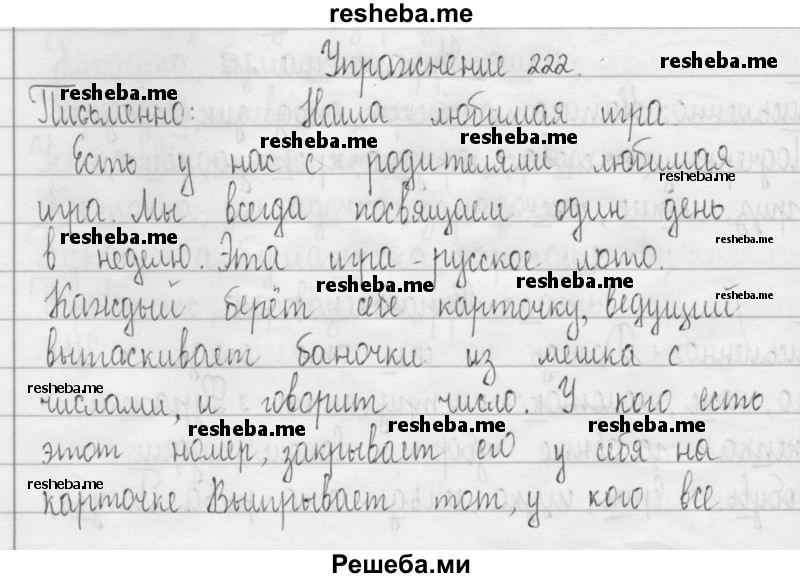 resheba.me
Упражнение 222. resheba.me
resheba.me
Письменно: Наша любимая игра.
resheba.me resheba.me
Есть у нас с родителями любимая
resheba.me
игра Мы всегда посвящаем один день
resheba.me resheba.me
в неделю. Эта игра - русское лото.
resheba.me resheba.me resheba.me
Каждый берёт себе карточку, ведущий
вытаскивает баночки из мешка с
resheba.me
числами, и говорит число. У кого есть
resheba.me resheba.me resheba.me
этот номер, закрывает его у себя на
resheba.me
карточке. Выигрывает тот, у кого все
Решеба.ми